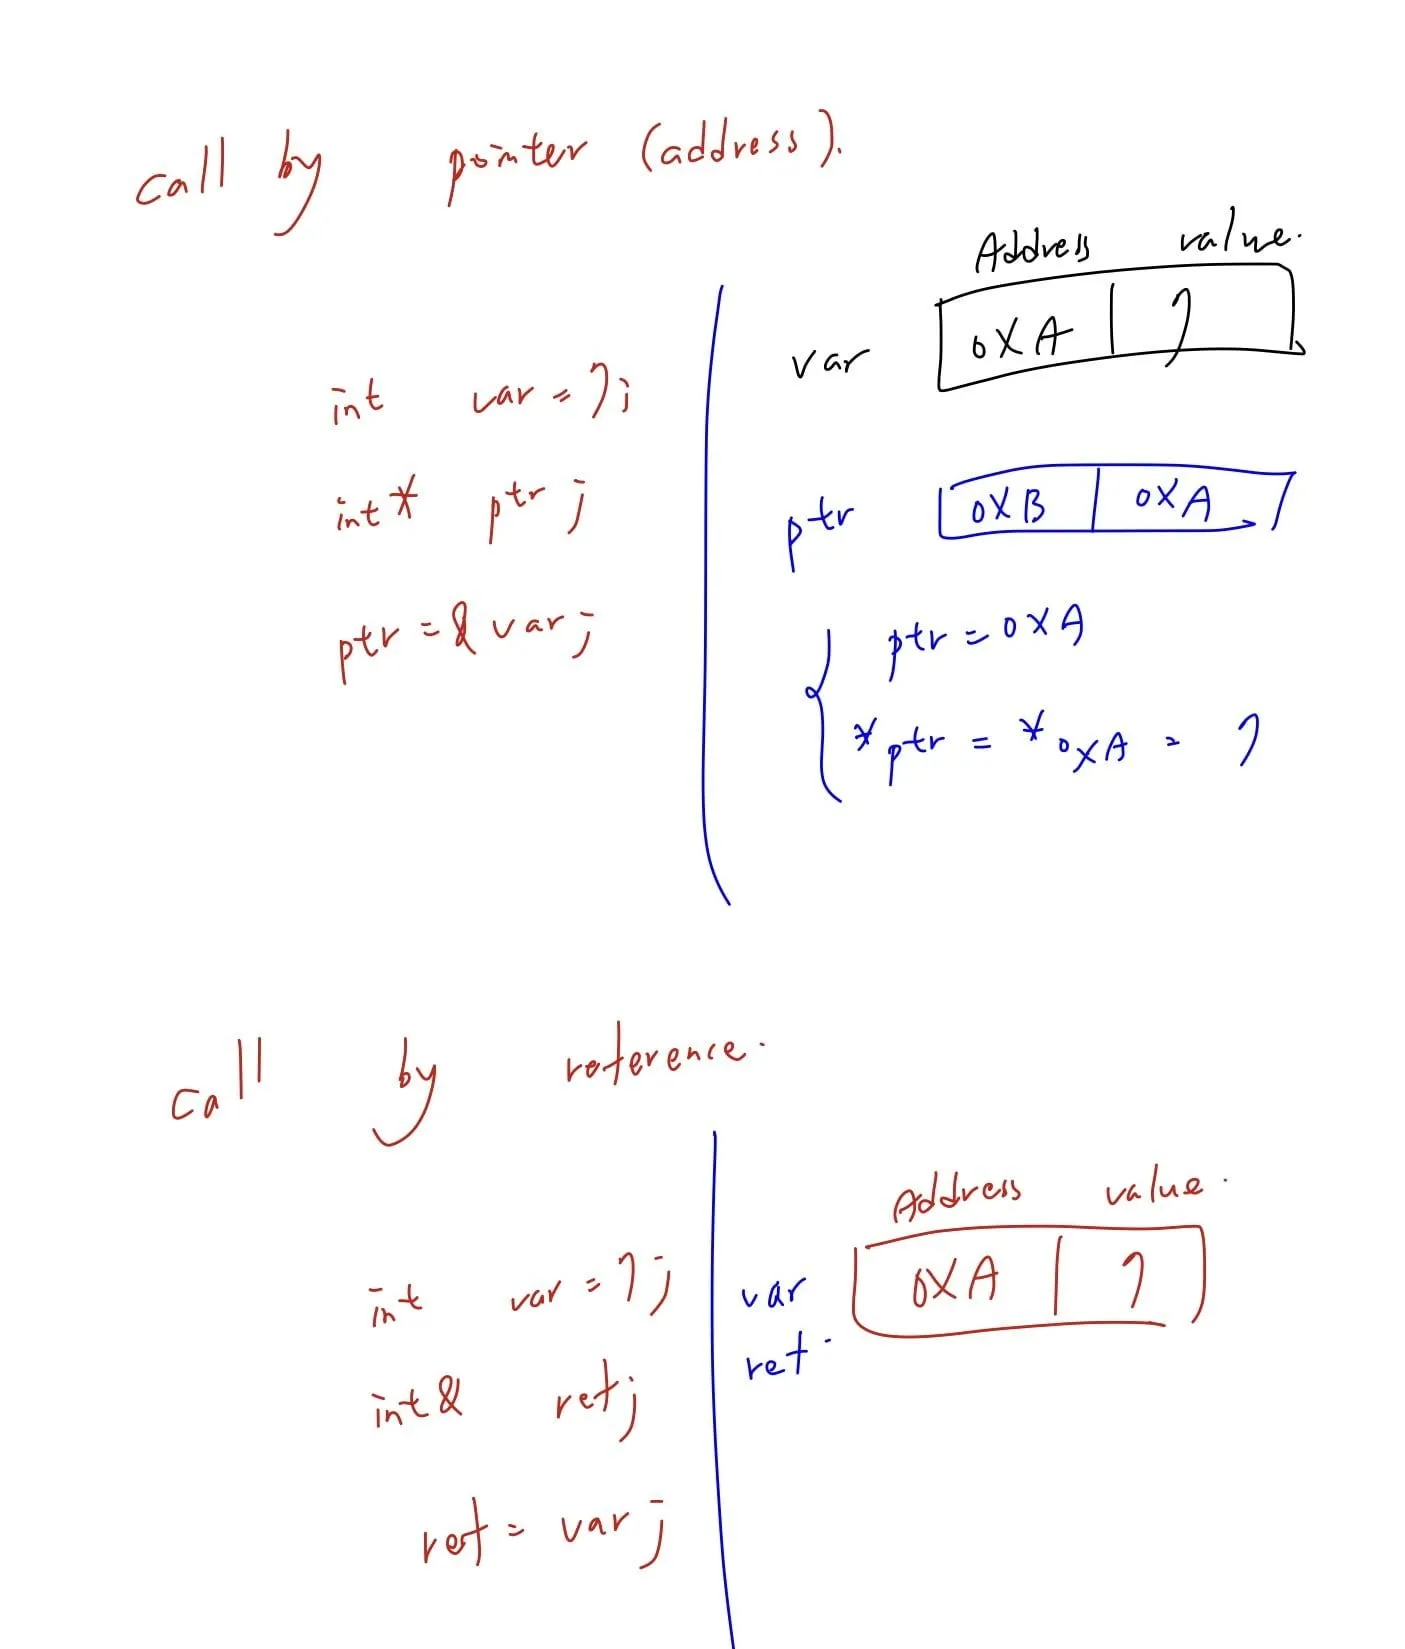 call by pointer (address).
Address value.
var 0XA 7
int var = 7;
int* ptr;
ptr 0XB 0XA
ptr = &var;
ptr = 0XA
*ptr = *0XA = 7
call by reference.
Address value.
int var = 7;
var 0XA 7
ref.
int& ref;
ref = var;